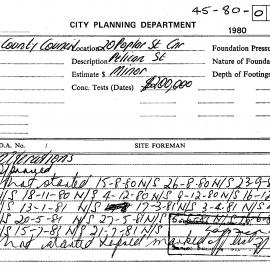 45-80-0
CITY PLANNING DEPARTMENT
1980
County Council Location 20 Poplar St Cnr Foundation Pressu
Description Pelican St Nature of Founda
Estimate $ Minor Depth of Footings
Conc. Tests (Dates) $200,000
D.A. No. / SITE FOREMAN
Alterations
Not started 15-8-80 N/S 26-8-80 23-9-8
/S 18-11-80 N/S 4-12-80 N/S 16-12
/S 13-1-81 N/S 17-3-81 N/S 3-4-81 N/S
20-5-81 N/S 27-5-81 N/S
/S 15-7-81 N/S 21-7-81 N/S
Not started marked off